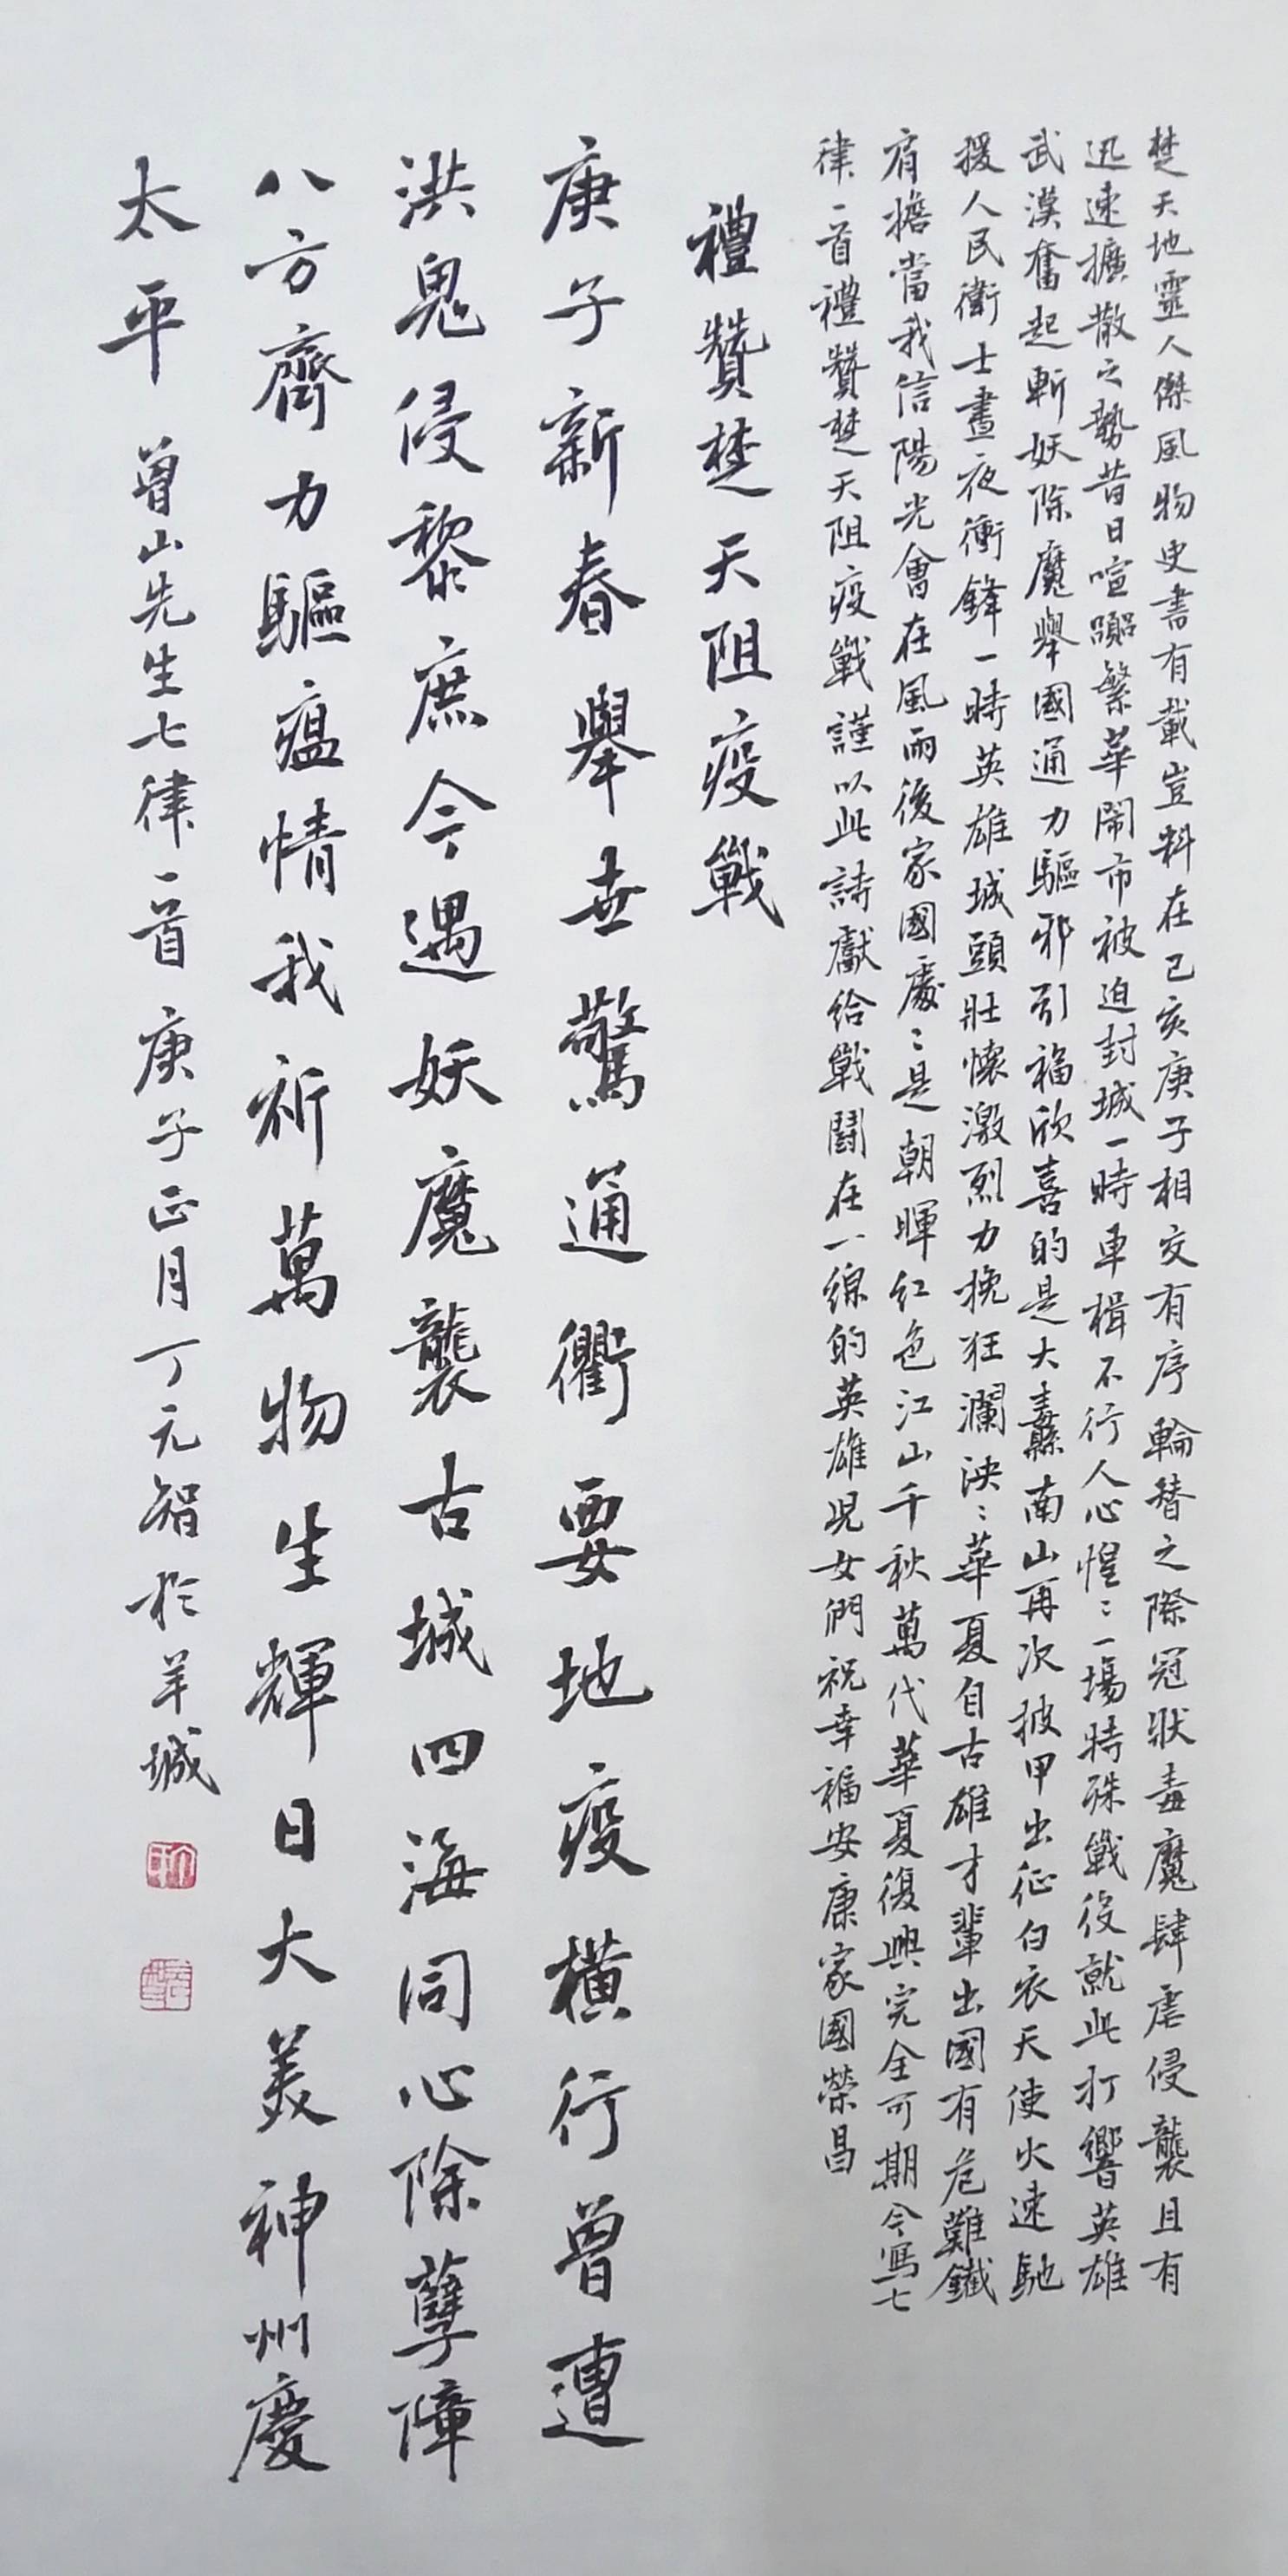 楚天地靈人傑風物史書有載豈料在己亥庚子相交有序輪替之際冠狀毒魔肆虐侵襲且有
迅速擴散之勢昔日喧躁繁華鬧市被迫封城一時車楫不行人心惶〻一場特殊戰役就此打響英雄
武漢奮起斬妖除魔舉國通力驅邪引福欣喜的是大纛南山再次披甲出征白衣天使火速馳
援人民衛士晝夜衝鋒一時英雄城頭壯懷激烈力挽狂瀾泱〻華夏自古雄才輩出國有危難鐵
肩擔當我信陽光會在風雨後家國處〻是朝暉紅色江山千秋萬代華夏復興完全可期今寫七
律一首禮贊楚天阻疫戰謹以此詩獻給戰鬪在一線的英雄児女們祝幸福安康家國榮昌
禮贊楚天阻疫戰
庚子新春舉世驚通衢要地疫橫行曾遭
洪鬼侵黎庶今遇妖魔襲古城四海同心除孽障
八方齊力驅瘟情我祈萬物生輝日大美神州慶
太平 曾山先生七律一首庚子正月丁元智於羊城